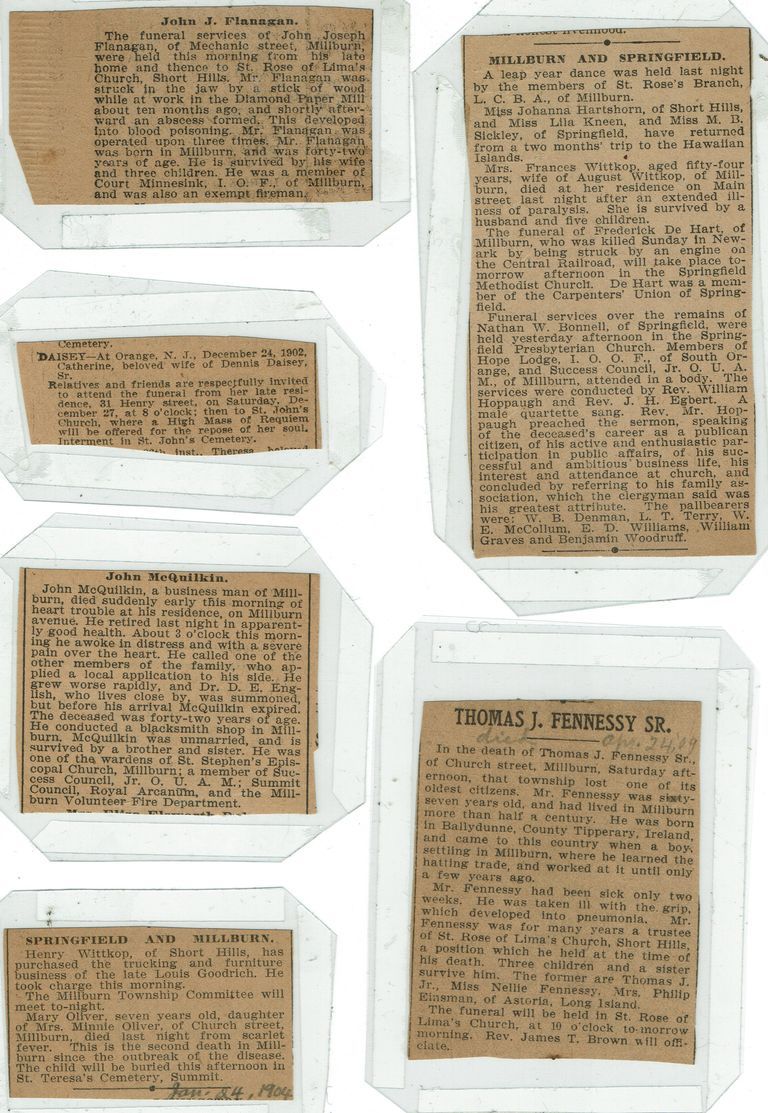 John J. Flanagan.
The funeral services of John Joseph
Flanagan, of Mechanic street, Millburn,
were held this morning from his late
home and thence to St. Rose of Lima's
Church, Short Hills. Mr. Flanagan was
struck in the jaw by a stick of wood
while at work in the Diamond Paper Mill
about ten months ago, and shortly after-
ward an abscess formed. This developed
into blood poisoning. Mr. Flanagan was
operated upon three times. Mr. Flanagan
was born in Millburn, and was forty-two
years of age. He is survived by his wife
and three children. He was a member of
Court Minnesink, I. O. F., of Millburn,
and was also an exempt fireman.
Cemetery.
DAISEY—At Orange, N. J., December 24, 1902,
Catherine, beloved wife of Dennis Daisey,
Sr.
Relatives and friends are respectfully invited
to attend the funeral from her late resi-
dence, 31 Henry street, on Saturday, De-
cember 27, at 8 o'clock; then to St. John's
Church, where a High Mass of Requiem
will be offered for the repose of her soul.
Interment in St. John's Cemetery.
inst., Theresa beloved
John McQuilkin.
John McQuilkin, a business man of Mill-
burn, died suddenly early this morning of
heart trouble at his residence, on Millburn
avenue. He retired last night in apparent-
ly good health. About 3 o'clock this morn-
ing he awoke in distress and with a severe
pain over the heart. He called one of the
other members of the family, who ap-
plied a local application to his side. He
grew worse rapidly, and Dr. D. E. Eng-
lish, who lives close by, was summoned,
but before his arrival McQuilkin expired.
The deceased was forty-two years of age.
He conducted a blacksmith shop in Mill-
burn. McQuilkin was unmarried, and is
survived by a brother and sister. He was
one of the wardens of St. Stephen's Epis-
copal Church, Millburn; a member of Suc-
cess Council, Jr. O. U. A. M.; Summit
Council, Royal Arcanum, and the Mill-
burn Volunteer Fire Department.
SPRINGFIELD AND MILLBURN.
Henry Wittkop, of Short Hills, has
purchased the trucking and furniture
business of the late Louis Goodrich. He
took charge this morning.
The Millburn Township Committee will
meet to-night.
Mary Oliver, seven years old, daughter
of Mrs. Minnie Oliver, of Church street,
Millburn, died last night from scarlet
fever. This is the second death in Mill-
burn since the outbreak of the disease.
The child will be buried this afternoon in
St. Teresa's Cemetery, Summit.
Jan. 24, 1904
livelihood.
MILLBURN AND SPRINGFIELD.
A leap year dance was held last night
by the members of St. Rose's Branch,
L. C. B. A., of Millburn.
Miss Johanna Hartshorn, of Short Hills,
and Miss Lila Kneen, and Miss M. B.
Sickley, of Springfield, have returned
from a two months' trip to the Hawaiian
Islands.
Mrs. Frances Wittkop, aged fifty-four
years, wife of August Wittkop, of Mill-
burn, died at her residence on Main
street last night after an extended ill-
ness of paralysis. She is survived by a
husband and five children.
The funeral of Frederick De Hart, of
Millburn, who was killed Sunday in New-
ark by being struck by an engine on
the Central Railroad, will take place to-
morrow afternoon in the Springfield
Methodist Church. De Hart was a mem-
ber of the Carpenters' Union of Spring-
field.
Funeral services over the remains of
Nathan W. Bonnell, of Springfield, were
held yesterday afternoon in the Spring-
field Presbyterian Church. Members of
Hope Lodge, I. O. O. F., of South Or-
ange, and Success Council, Jr. O. U. A.
M., of Millburn, attended in a body. The
services were conducted by Rev. William
Hoppaugh and Rev. J. H. Egbert. A
male quartette sang. Rev. Mr. Hop-
paugh preached the sermon, speaking
of the deceased's career as a publican
citizen, of his active and enthusiastic par-
ticipation in public affairs, of his suc-
cessful and ambitious business life, his
interest and attendance at church, and
concluded by referring to his family as-
sociation, which the clergyman said was
his greatest attribute. The pallbearers
were: W. B. Denman, L. T. Terry, W.
E. McCollum, E. D. Williams, William
Graves and Benjamin Woodruff.
THOMAS J. FENNESSY SR.
died Apr. 24, 09
In the death of Thomas J. Fennessy Sr.,
of Church street, Millburn, Saturday aft-
ernoon, that township lost one of its
oldest citizens. Mr. Fennessy was sixty-
seven years old, and had lived in Millburn
more than half a century. He was born
in Ballydunne, County Tipperary, Ireland,
and came to this country when a boy,
settling in Millburn, where he learned the
hatting trade, and worked at it until only
a few years ago.
Mr. Fennessy had been sick only two
weeks. He was taken ill with the grip,
which developed into pneumonia. Mr.
Fennessy was for many years a trustee
of St. Rose of Lima's Church, Short Hills,
a position which he held at the time of
his death. Three children and a sister
survive him. The former are Thomas J.
Jr., Miss Nellie Fennessy, Mrs. Philip
Einsman, of Astoria, Long Island.
The funeral will be held in St. Rose of
Lima's Church, at 10 o'clock to-morrow
morning. Rev. James T. Brown will offi-
ciate.